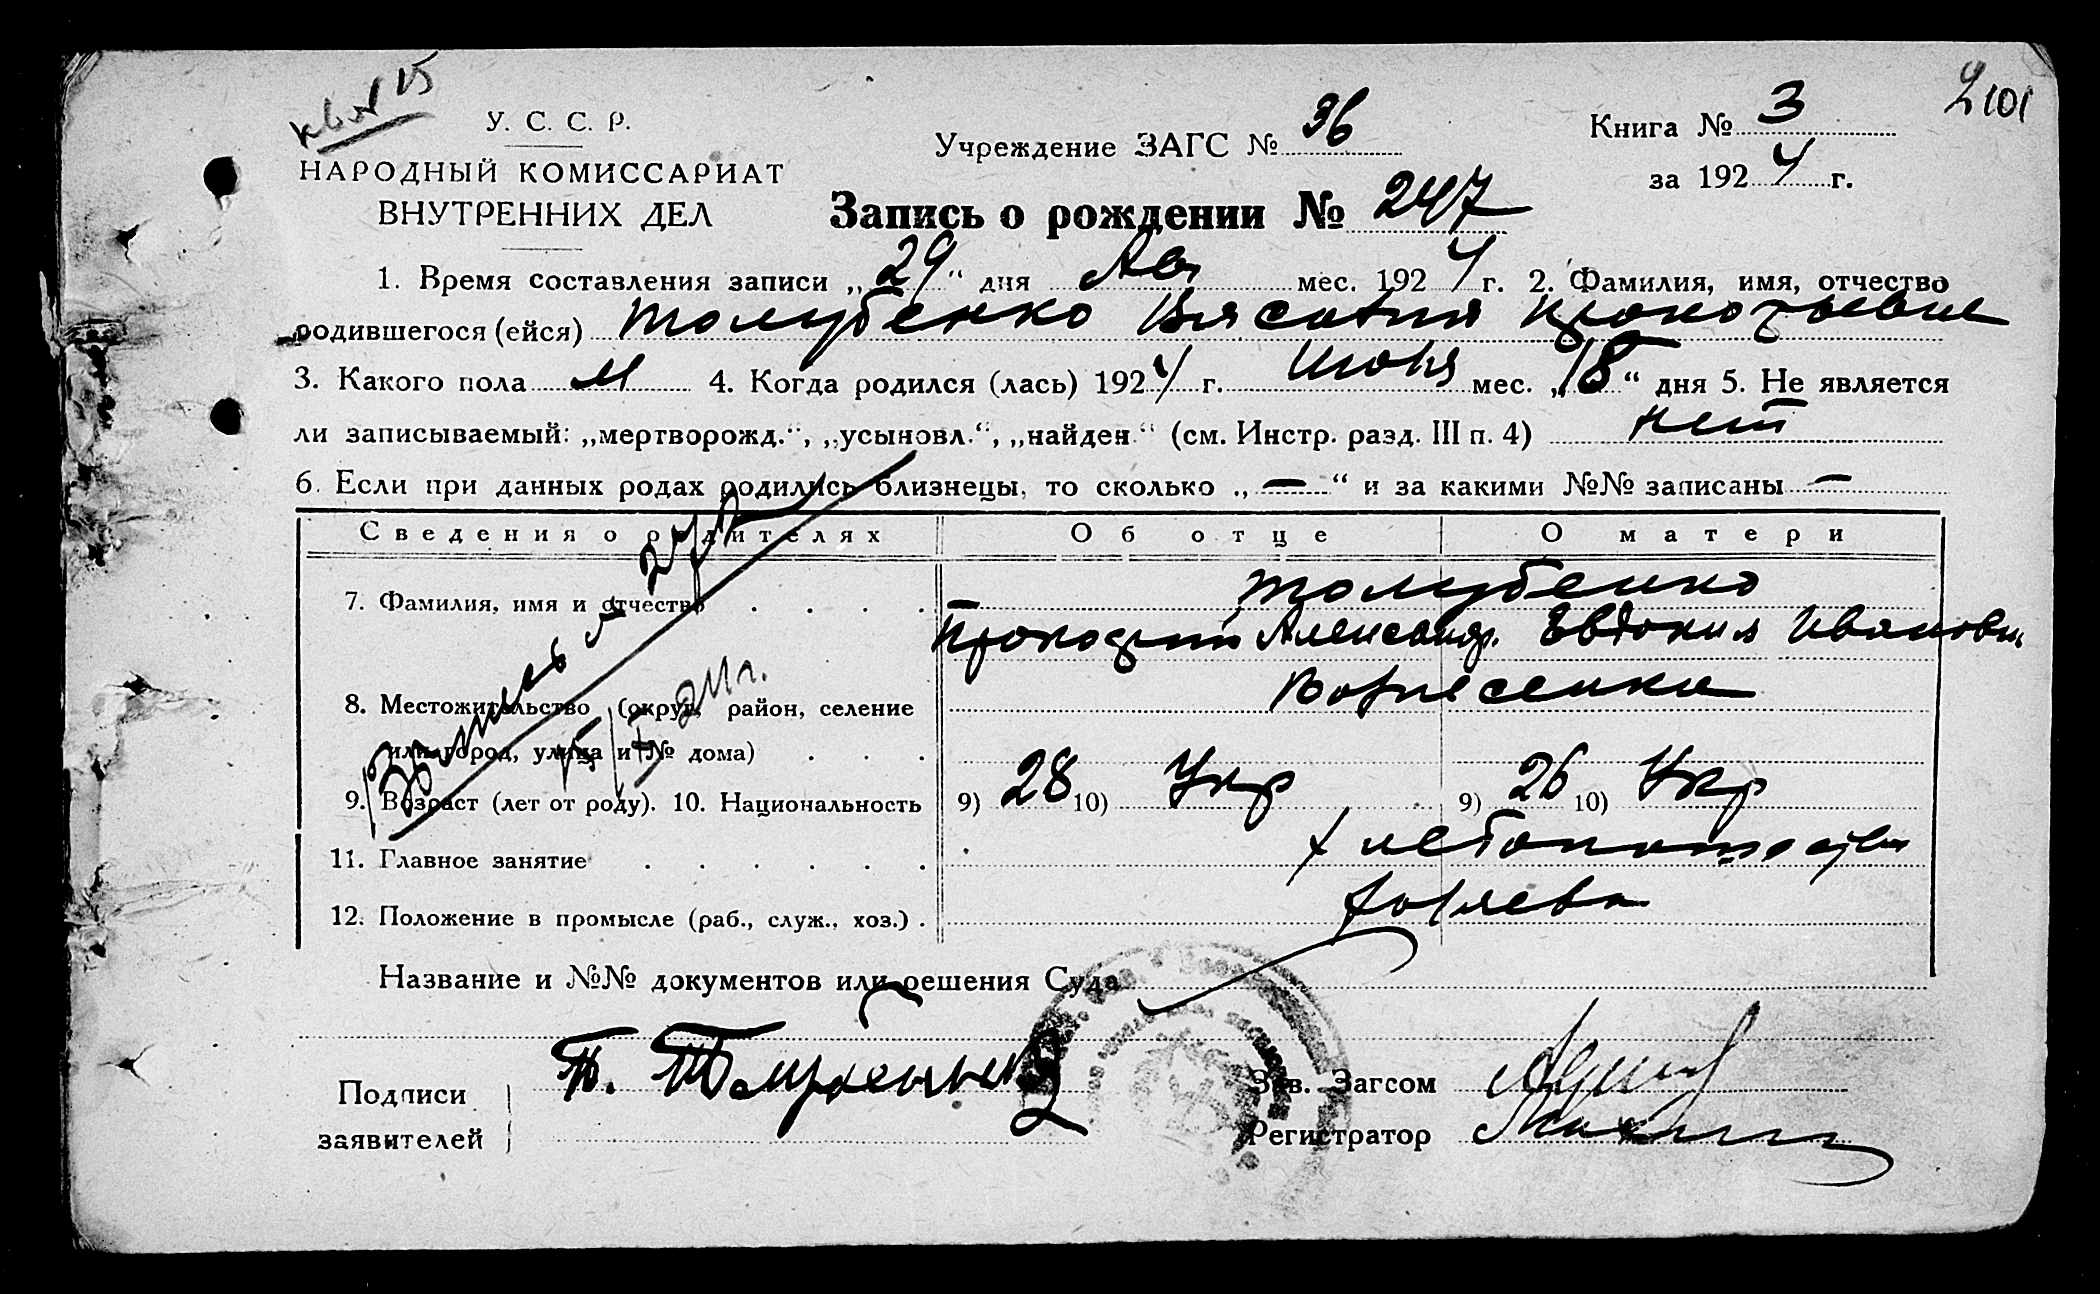 У. С. С. Р.
НАРОДНЫЙ КОМИССАРИАТ
ВНУТРЕННИХ ДЕЛ
Учреждение ЗАГС № 36
Книга № 3
за 1924 г.
2101
Запись о рождении № 247
1. Время составления записи „29“ дня Авг мес. 1924 г. 2. Фамилия, имя, отчество
родившегося (ейся) Толубенко
3. Какого пола М 4. Когда родился (лась) 1924 г. Июня мес. „18“ дня 5. Не является
ли записываемый: „мертворожд.“, „усыновл.“, „найден“ (см. Инстр. разд. III п. 4) нет
6. Если при данных родах родились близнецы, то сколько „—“ и за какими №№ записаны —
Сведения о родителях Об отце О матери
7. Фамилия, имя и отчество Толубенко
Прокофий Александр. Евдокия Ивановн
8. Местожительство (округ, район, селение Вознесенка
или город, улица и № дома)
9. Возраст (лет от роду). 10. Национальность 9) 28 10) Укр 9) 26 10) Укр
11. Главное занятие
12. Положение в промысле (раб., служ., хоз.) Хозяева
Название и №№ документов или решения Суда
Подписи
заявителей
Зав. Загсом
Регистратор